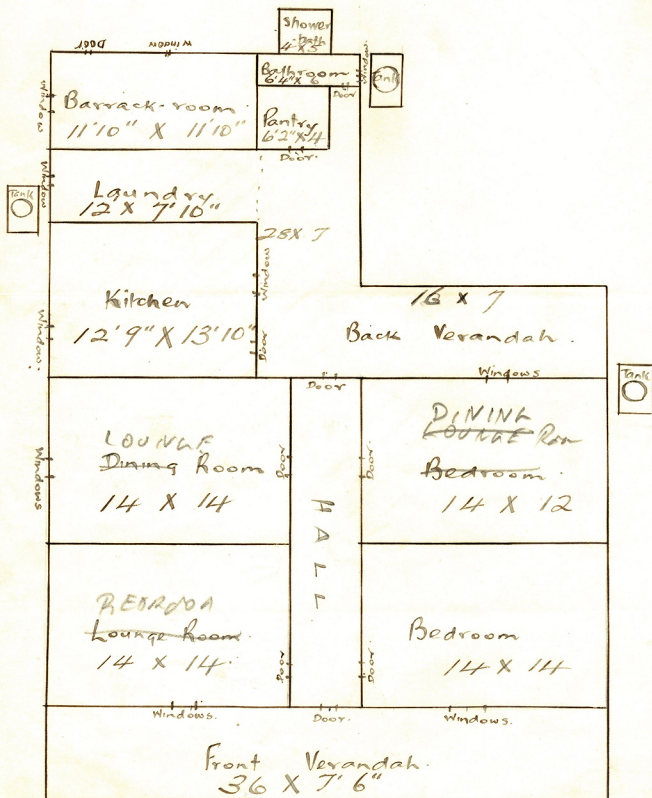 Shower
bath
4 X 5
Door
Window
Window
Bathroom
6'4" X 6
Door
Tank
Window
Barrack-room
11'10" X 11'10"
Pantry
6'2" X 4
Door.
Window
Laundry
12 X 7'10"
Tank
28 X 7
Kitchen
12'9" X 13'10"
Window
Door
Window.
16 X 7
Back Verandah.
Windows
Door
Tank
LOUNGE
Dining Room
14 X 14
Windows
Door
HALL
Door.
DINING
LOUNGE Rom
Bedroom
14 X 12
BEDROOM
Lounge Room
14 X 14
Door
Door
Bedroom
14 X 14
Windows.
Door.
Windows.
Front Verandah.
36 X 7'6"